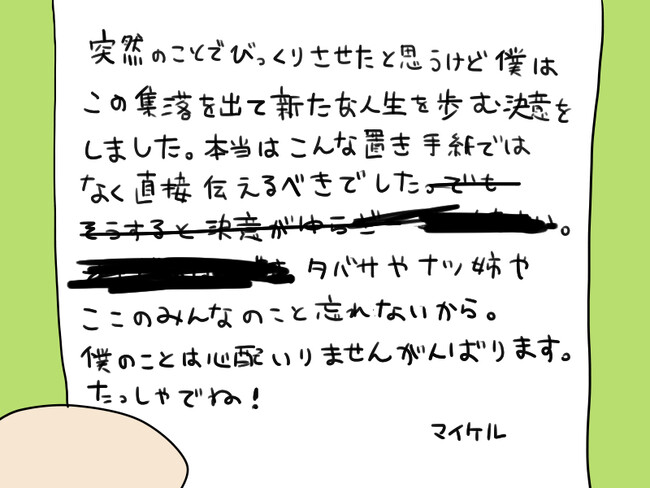 突然のことでびっくりさせたと思うけど僕は
この集落を出て新たな人生を歩む決意を
しました。本当はこんな置き手紙では
なく直接伝えるべきでした。でも
そうすると決意がゆらぎ 。
タバサやナツ姉や
ここのみんなのこと忘れないから。
僕のことは心配いりませんがんばります。
たっしゃでね！
マイケル